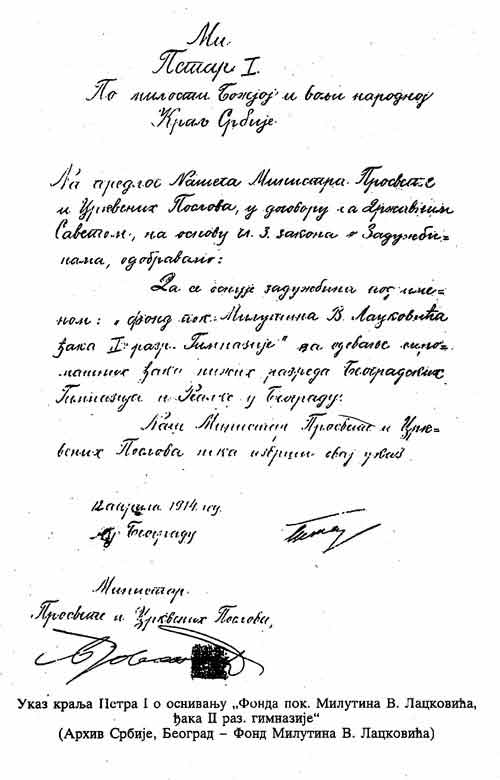 Ми
Петар I.
По милости Божјој и вољи народној
Краљ Србије.
На предлог Нашега Министра Просвете
и Црквених Послова, у договору са Државним
Саветом, на основу чл. 3. закона о Задужби-
нама, одобравамо:
Да се оснује задужбина под име-
ном: „фонд пок. Милутина В. Лацковића
ђака II разр. Гимназије" за одевање сиро-
машних ђака нижих разреда Београдских
Гимназија и Реалке у Београду.
Наш Министар Просвете и Црк-
вених Послова нека изврши овај указ.
априла 1914. год.
у Београду
Петар
Министар
Просвете и Црквених Послова,
Указ краља Петра I о оснивању „Фонда пок. Милутина В. Лацковића,
ђака II раз. гимназије“
(Архив Србије, Београд – Фонд Милутина В. Лацковића)